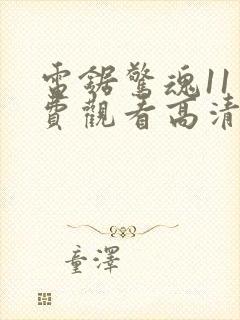 電鋸驚魂11
費觀看高清
童澤